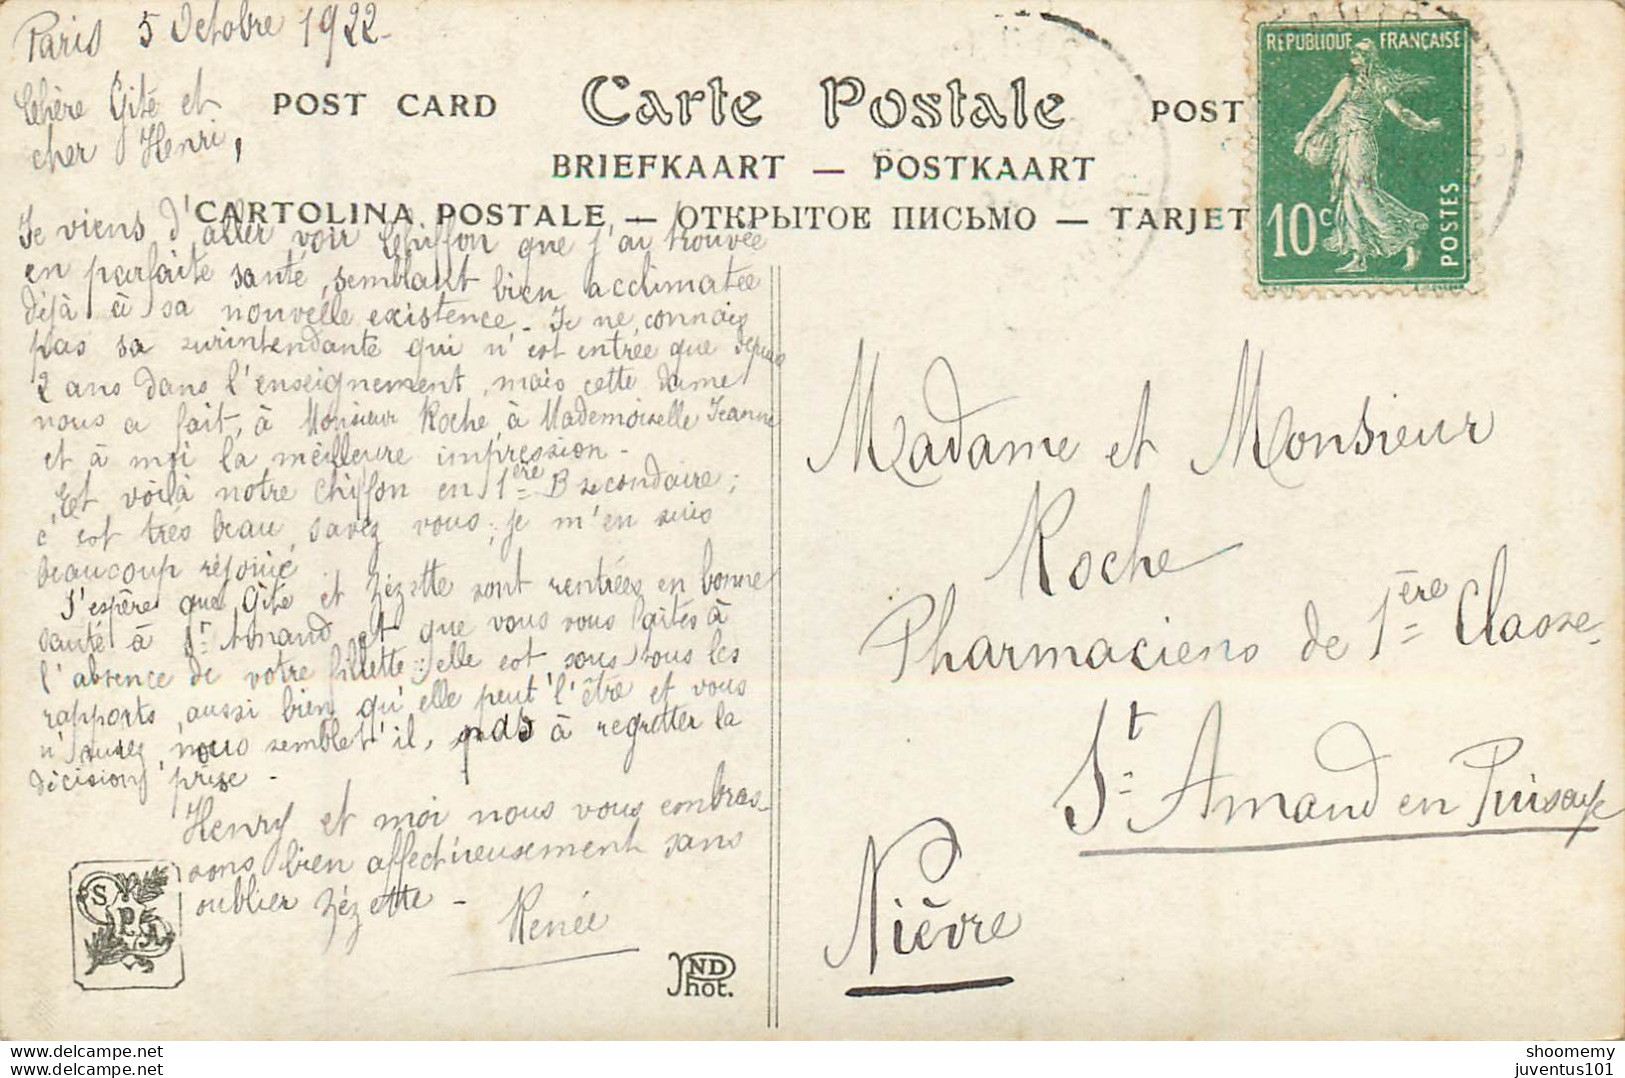 Paris 5 Octobre 1922-
Chère Gité et
cher Henri,
POST CARD Carte Postale POST
BRIEFKAART — POSTKAART
CARTOLINA POSTALE — ОТКРЫТОЕ ПИСЬМО — TARJET
REPUBLIQUE FRANÇAISE
10c POSTES
Je viens d'aller voir Chiffon que j'ai trouvée
en parfaite santé, semblant bien acclimatée
déjà à sa nouvelle existence. Je ne connais
pas sa surintendante qui n'est entrée que depuis
2 ans dans l'enseignement, mais cette dame
nous a fait, à Monsieur Roche, à Mademoiselle Jeanne
et à moi la meilleure impression.
Et voilà notre Chiffon en 1ère B secondaire;
c'est très beau, savez vous; je m'en suis
beaucoup réjouie.
J'espère que Gité et Zézette sont rentrées en bonne
santé à St Amand et que vous vous faites à
l'absence de votre fillette: elle est, sous tous les
rapports, aussi bien qu'elle peut l'être et vous
n'aurez, nous semble t'il, pas à regretter la
décision prise -
Henry et moi nous vous embras-
sons bien affectueusement sans
oublier Zézette -
Renée
Madame et Monsieur
Roche
Pharmaciens de 1ère Classe
St Amand en Puisaye
Nièvre
SPA
ND Phot.
shoomemy
juventus101
shoomemy
juventus101